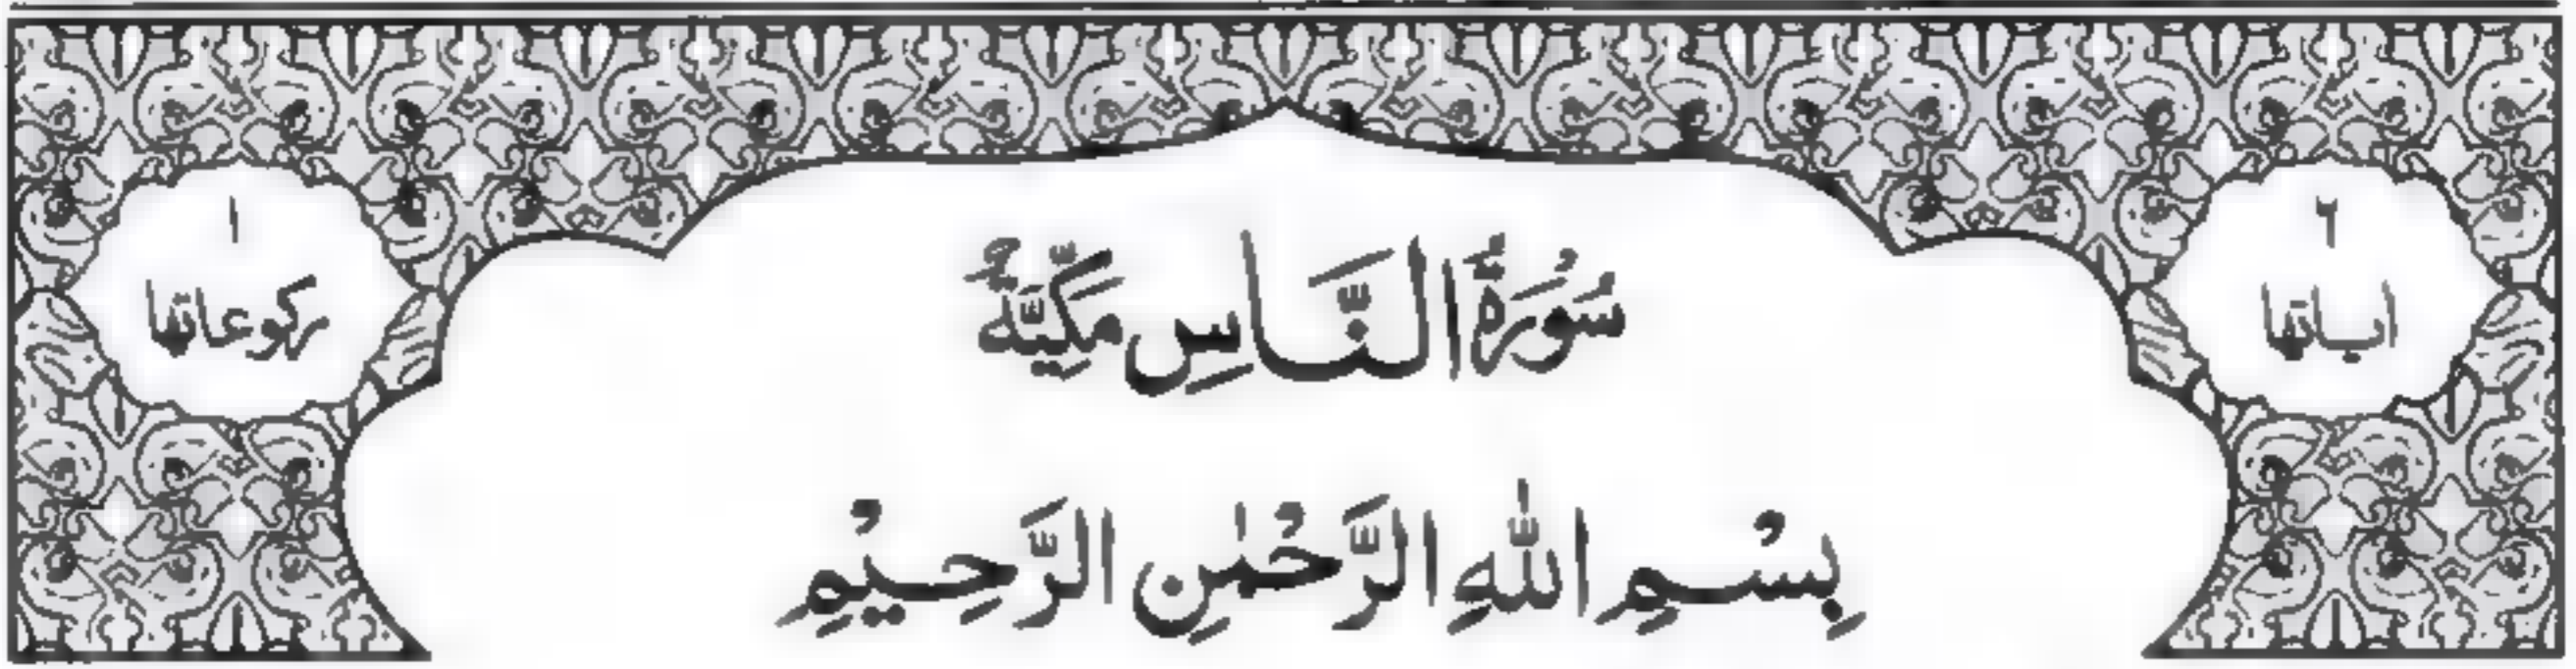 ٦
اٰیاتها
سُوْرَةُ النَّاسِ مَكِّيَّةٌ
١
ركوعاتها
بِسْمِ اللّٰهِ الرَّحْمٰنِ الرَّحِيْمِ